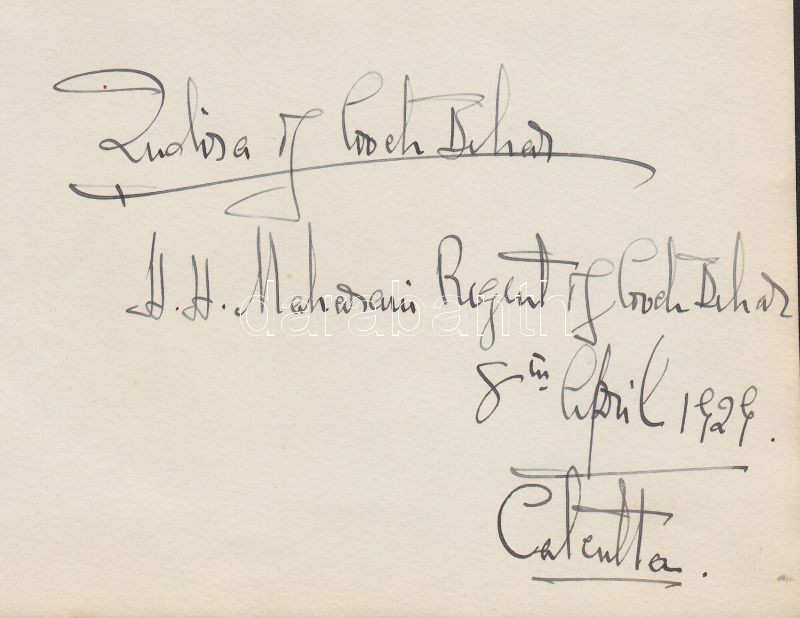 Indira of Cooch Behar
H. H. Maharani Regent of Cooch Behar
darabanth
8th April 1929.
Calcutta.